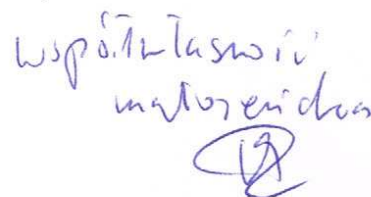 współwłasność
małżeńska